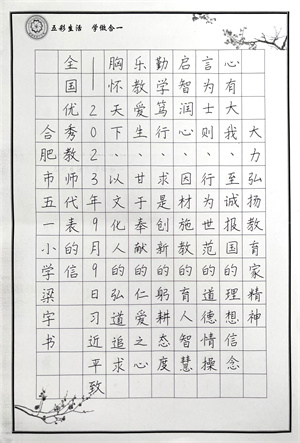 五彩生活 学做合一
大力弘扬教育家精神
心有大我、至诚报国的理想信念
言为士则、行为世范的道德情操
启智润心、因材施教的育人智慧
勤学笃行、求是创新的躬耕态度
乐教爱生、甘于奉献的仁爱之心
胸怀天下、以文化人的弘道追求
——2023年9月9日习近平致
全国优秀教师代表的信
合肥市五一小学梁宇书